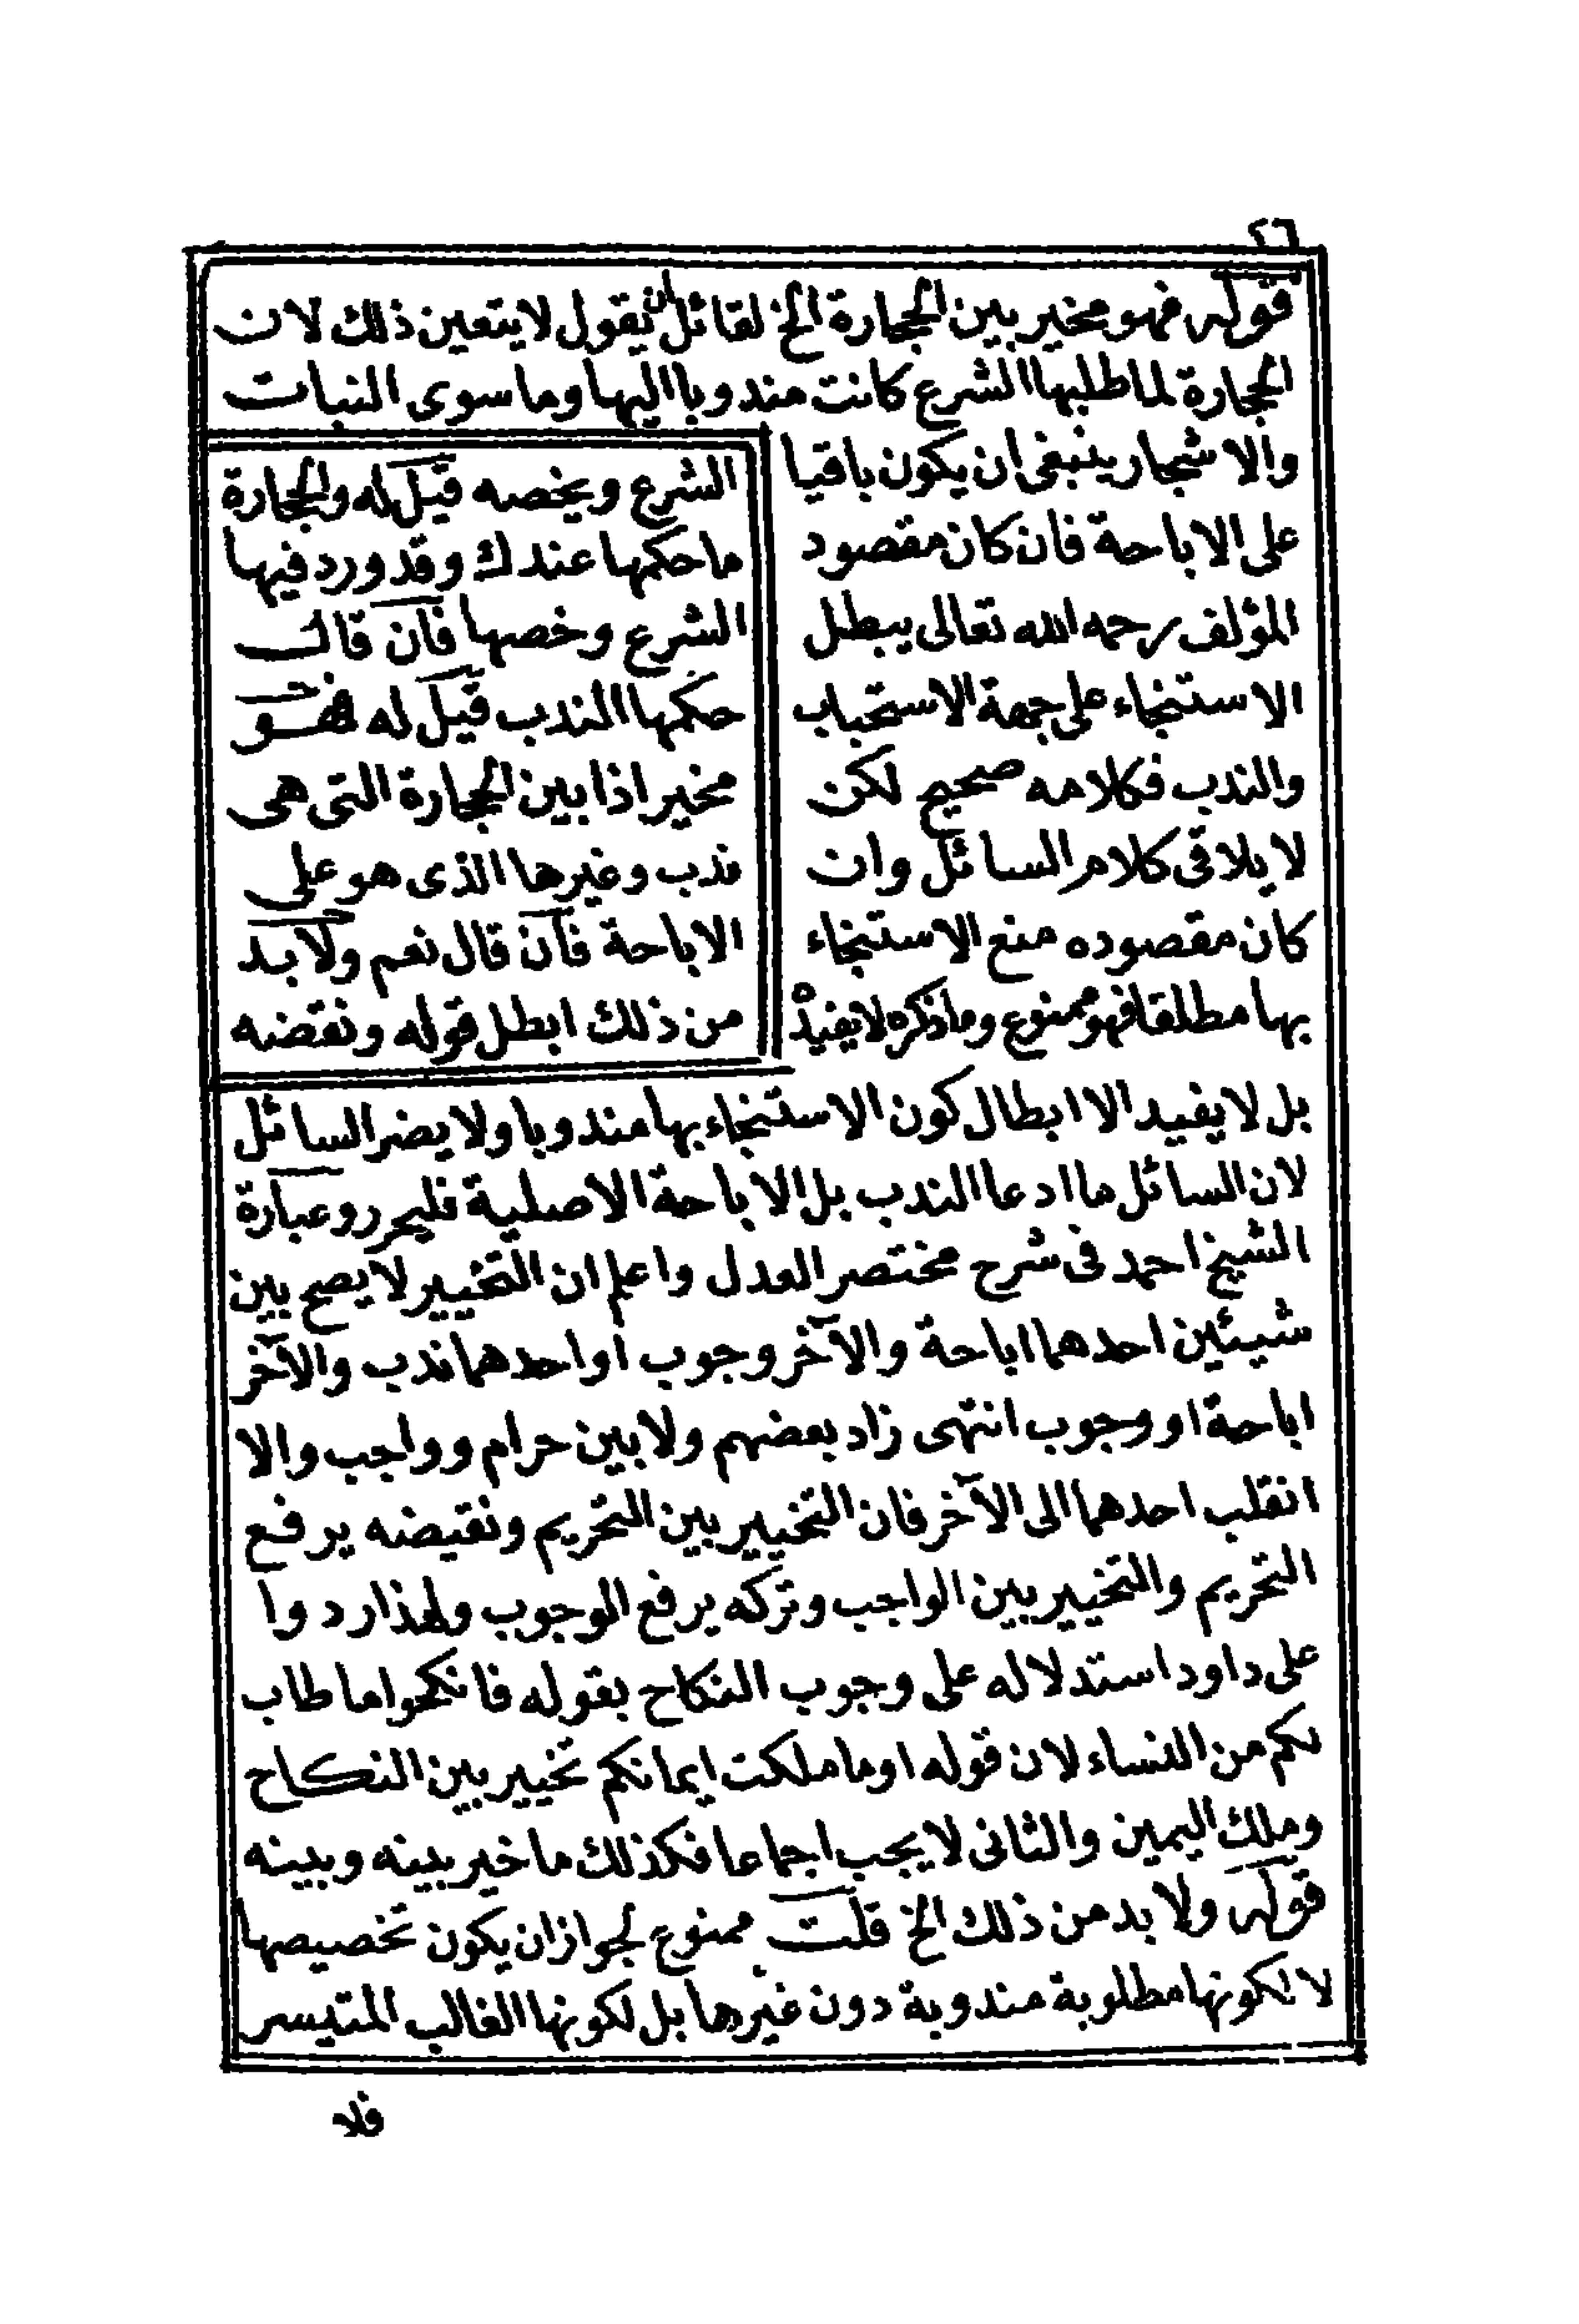 ٢٦
قوله فهو مخير بين الحجارة الخ لقائل ان يقول لا يتعين ذلك لان
الحجارة لما طلبها الشرع كانت مندوبا اليها وما سوى النبات
والاشجار ينبغى ان يكون باقيا
على الاباحة فان كان مقصود
المؤلف رحمه الله تعالى يبطل
الاستنجاء على جهة الاستحباب
والندب فكلامه صحيح لكن
لا يلاقى كلام السائل وان
كان مقصوده منع الاستنجاء
بها مطلقا فهو ممنوع وما ذكره لا يفيده
الشرع ويخصه قيل له والحجارة
ما حكمها عندك وقد ورد فيها
الشرع وخصها فان قال
حكمها الندب قيل له فهو
مخير اذا بين الحجارة التى هى
ندب وغيرها الذى هو على
الاباحة فان قال نعم ولا بد
من ذلك ابطل قوله ونقضه
بل لا يفيد الا ابطال كون الاستنجاء بها مندوبا ولا يضر السائل
لان السائل ما ادعا الندب بل الاباحة الاصلية فليحرر وعبارة
الشيخ احمد فى شرح مختصر العدل واعلم ان التخيير لا يصح بين
شيئين احدهما اباحة والآخر وجوب او احدهما ندب والآخر
اباحة او وجوب انتهى زاد بعضهم ولا بين حرام وواجب والا
انقلب احدهما الى الآخر فان التخيير بين التحريم ونقيضه يرفع
التحريم والتخيير بين الواجب وتركه يرفع الوجوب ولهذا ردوا
على داود استدلاله على وجوب النكاح بقوله فانكحوا ما طاب
لكم من النساء لان قوله او ما ملكت ايمانكم تخيير بين النكاح
وملك اليمين والثانى لا يجب اجماعا فكذلك ما خير بينه وبينه
قوله ولا بد من ذلك الخ قلت ممنوع لجواز ان يكون تخصيصها
لا لكونها مطلوبة مندوبة دون غيرها بل لكونها الغالب المتيسر
فلا